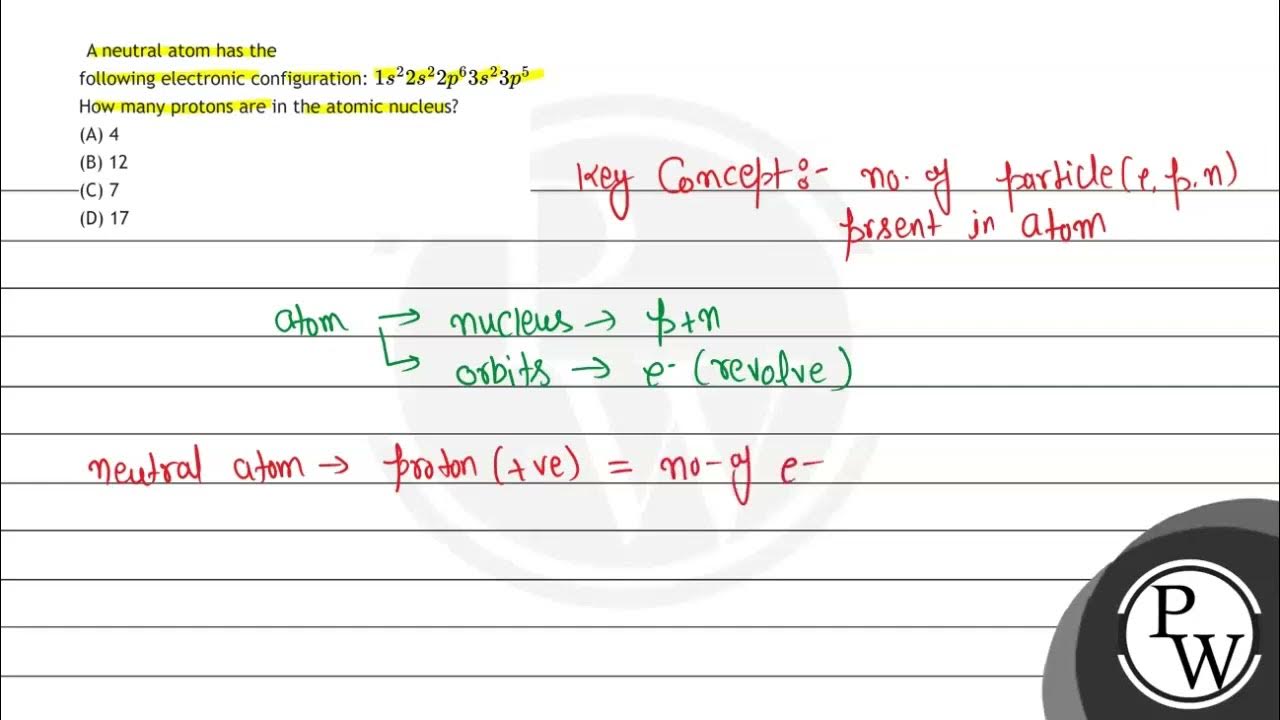 A neutral atom has the
following electronic configuration: 1s²2s²2p⁶3s²3p⁵
How many protons are in the atomic nucleus?
(A) 4
(B) 12
(C) 7
(D) 17
Key Concept :- no. of particle (e, p, n)
prsent in atom
atom → nucleus → p+n
↳ orbits → e⁻ (revolve)
neutral atom → proton (+ve) = no- of e-
PW
PW